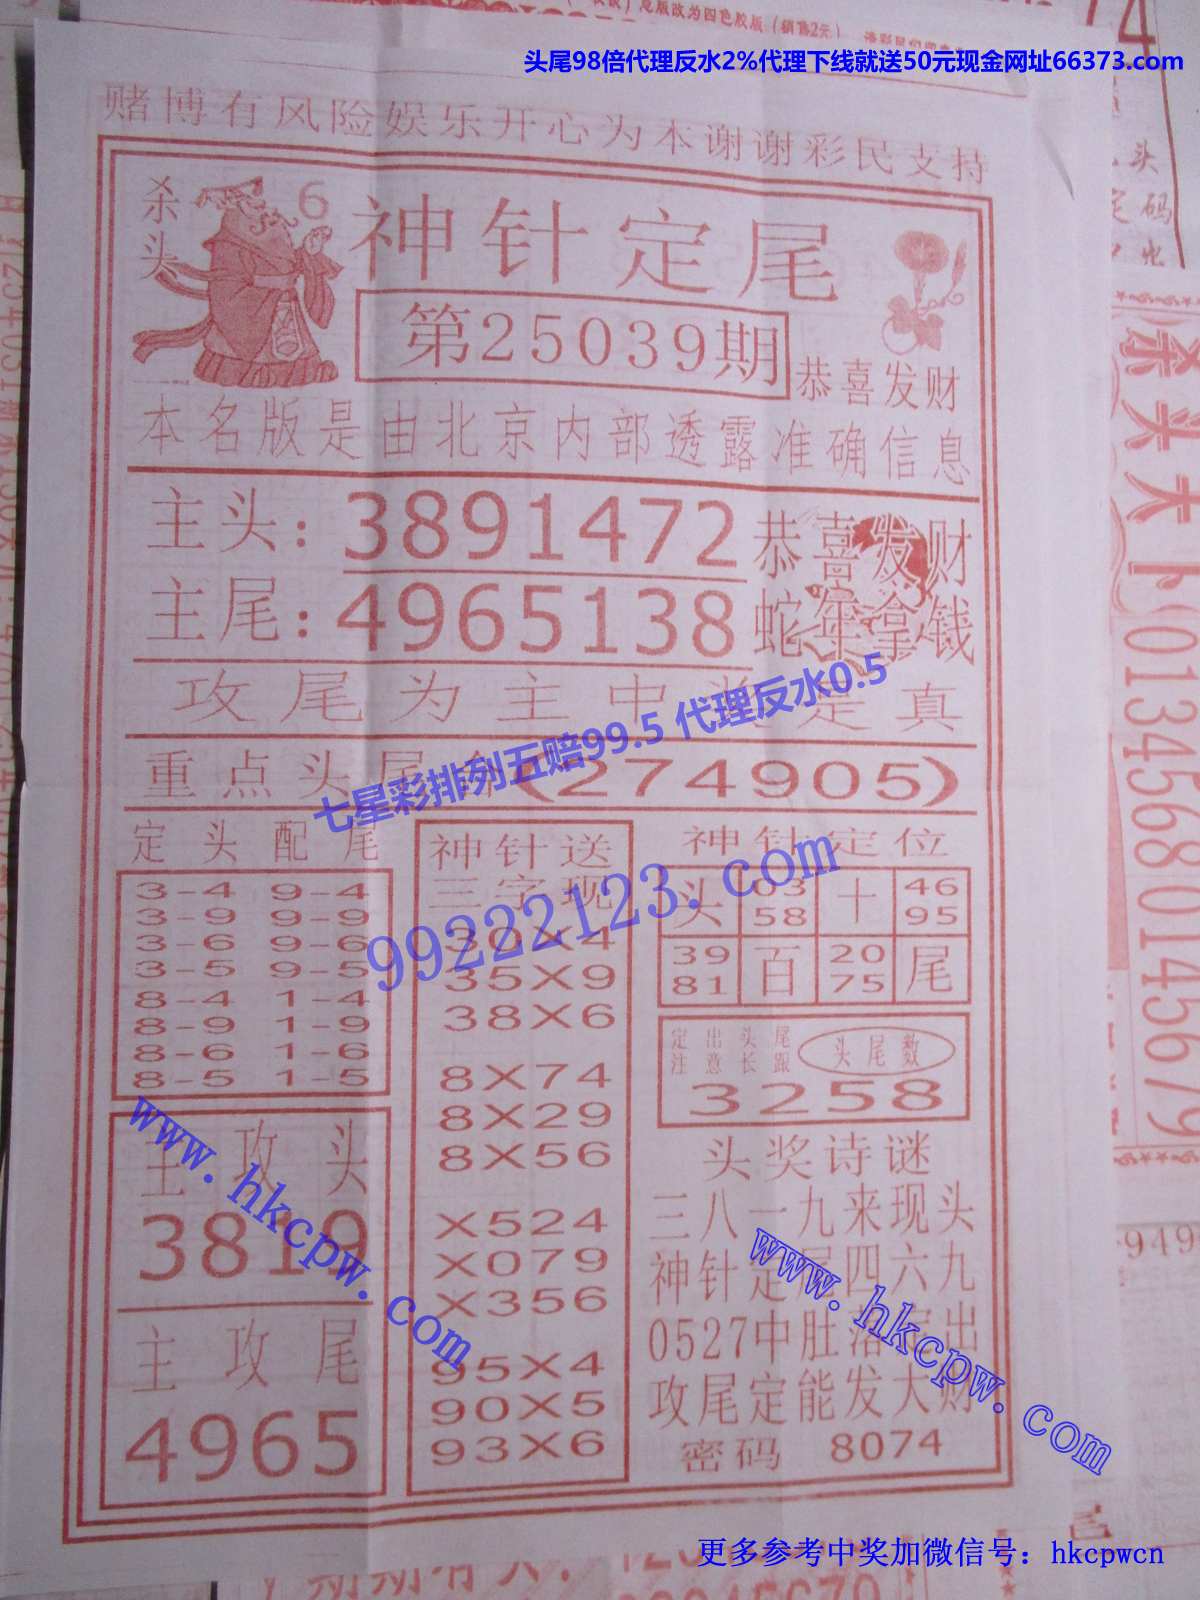 头尾98倍代理反水2%代理下线就送50元现金网址66373.com
赌博有风险娱乐开心为本谢谢彩民支持
杀头
6
神针定尾
第25039期
恭喜发财
本名版是由北京内部透露准确信息
主头:3891472
恭喜发财
主尾:4965138
蛇年拿钱
攻尾为主中奖是真
重点头尾 (274905)
七星彩排列五赔99.5 代理反水0.5
99222123.com
定头配尾
3-4 9-4
3-9 9-9
3-6 9-6
3-5 9-5
8-4 1-4
8-9 1-9
8-6 1-6
8-5 1-5
主攻头
3819
主攻尾
4965
神针送
三字现
30X4
35X9
38X6
8X74
8X29
8X56
X524
X079
X356
95X4
90X5
93X6
神针定位
头 03 十 46
58 95
39 百 20 尾
81 75
定出头尾
注意长跟
头尾数
3258
头奖诗谜
三八一九来现头
神针定尾四六九
0527中肚落定出
攻尾定能发大财
密码 8074
www.hkcpw.com
www.hkcpw.com
杀头大卜
01345680145679
更多参考中奖加微信号：hkcpwcn